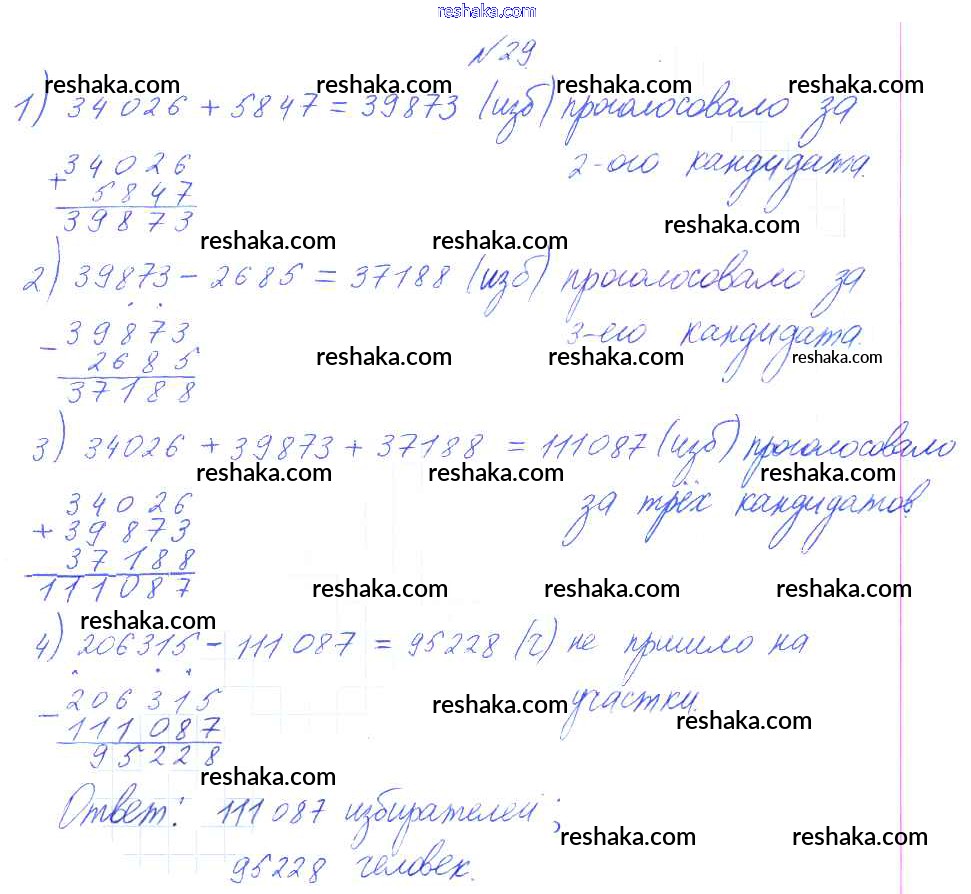 reshaka.com
№29.
reshaka.com reshaka.com reshaka.com reshaka.com
1) 34026 + 5847 = 39873 (изб) проголосовало за
2-ого кандидата.
+ 34026
5847
39873
reshaka.com
reshaka.com reshaka.com
2) 39873 - 2685 = 37188 (изб) проголосовало за
3-его кандидата.
- 39873
2685
37188
reshaka.com reshaka.com reshaka.com
3) 34026 + 39873 + 37188 = 111087 (изб) проголосовало
reshaka.com reshaka.com reshaka.com
за трёх кандидатов.
34026
+ 39873
37188
111087
reshaka.com reshaka.com reshaka.com
reshaka.com
4) 206315 - 111087 = 95228 (ч) не пришло на
участки.
- 206315
111087
95228
reshaka.com reshaka.com
reshaka.com
Ответ: 111087 избирателей;
reshaka.com reshaka.com
95228 человек.